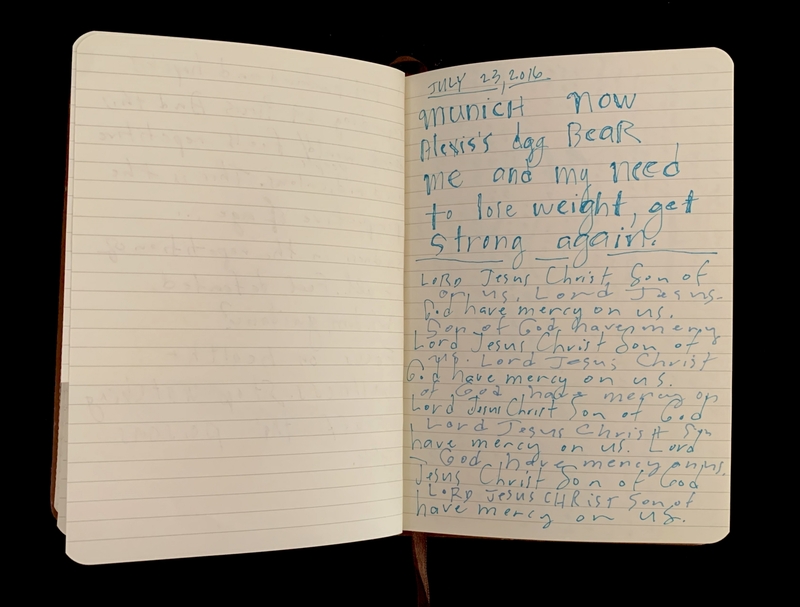 JULY 23, 2016
MUNICH NOW
Alexis's dog BeaR
me and my need
to lose weight, get
strong again.
LORD Jesus Christ Son of
on us. Lord Jesus
God have mercy on us.
Son of God have mercy
Lord Jesus Christ Son of
us. Lord Jesus Christ
God have mercy on us.
of God have mercy on
Lord Jesus Christ Son of God
Lord Jesus Christ Son
have mercy on us. Lord
God have mercy on us.
Jesus Christ Son of God
LORD Jesus CHRIST Son of
have mercy on us.